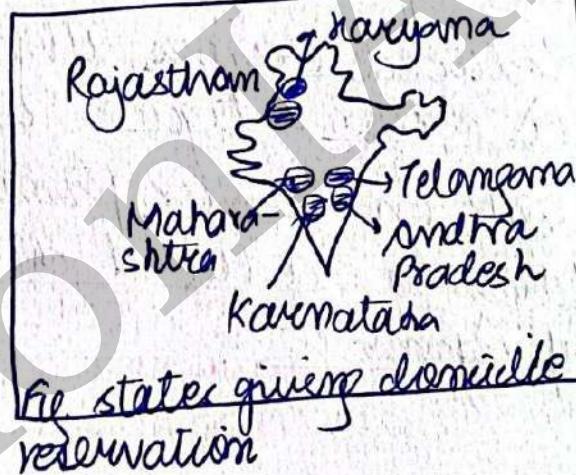 Haryana
Rajasthan
Telangana
Mahara-
shtra
Andhra
Pradesh
Karnataka
Fig. states giving domicile
reservation